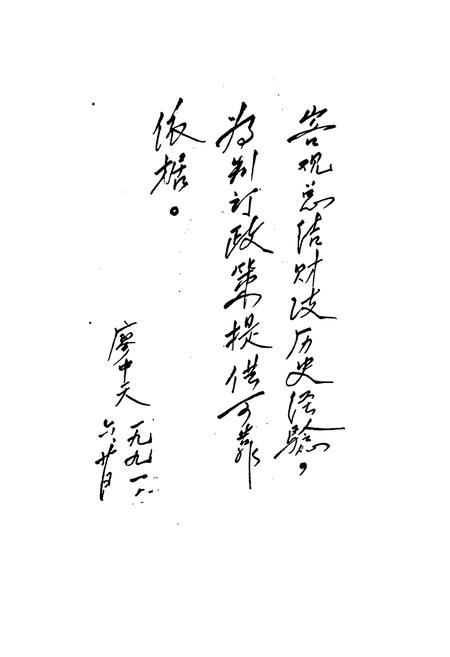 客观总结财政历史经验，
为制订政策提供可靠
依据。
廖中天
一九九一、
六、廿日